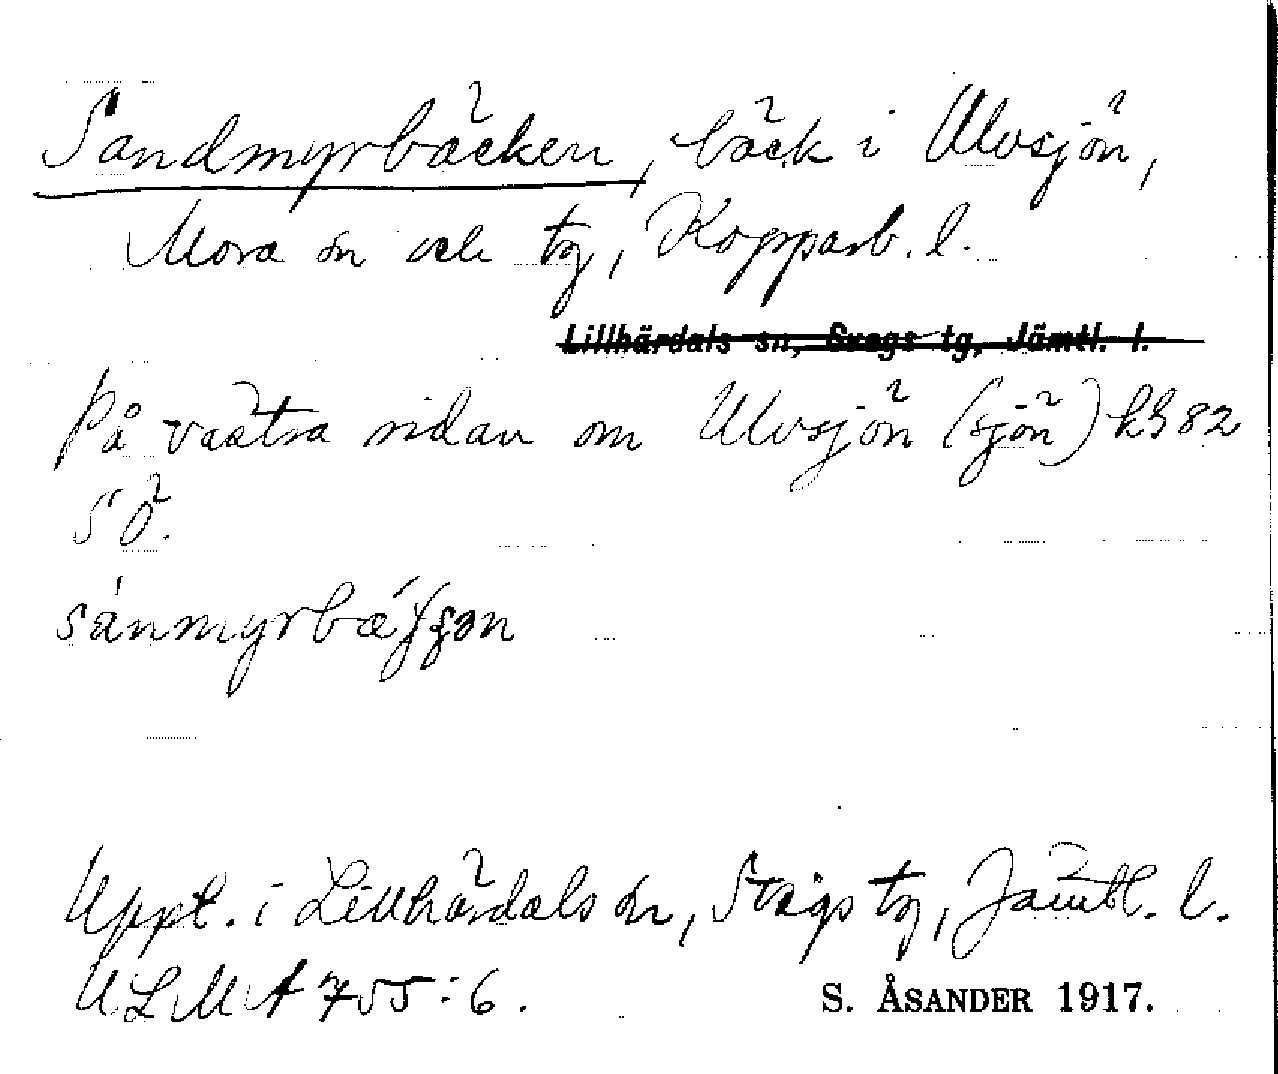 Sandmyrbäcken, bäck i Ulvsjön,
Mora sn och tg, Kopparb. l.
Lillhärdals sn, Svegs tg, Jämtl. l.
På västra sidan om Ulvsjön (sjön) kS 82
SÖ.
Uppt. i Lillhärdals sn, Svegs tg, Jämtl. l.
ULMA 755:6.
S. ÅSANDER 1917.